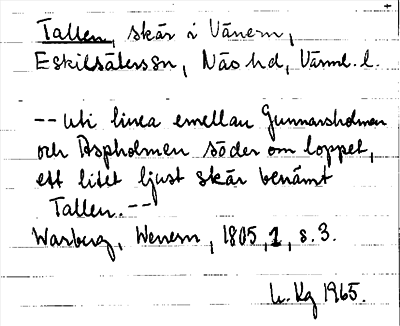 Tallen, skär i Vänern,
Eskilsäterssn, Näs hd, Värml. l.
-- uti linea emellan Gunnarsholmen
och Aspholmen söder om loppet,
ett litet ljust skär benämt
Tallen. --
Warberg, Wenern, 1805, 1, s. 3.
L. Kg 1965.